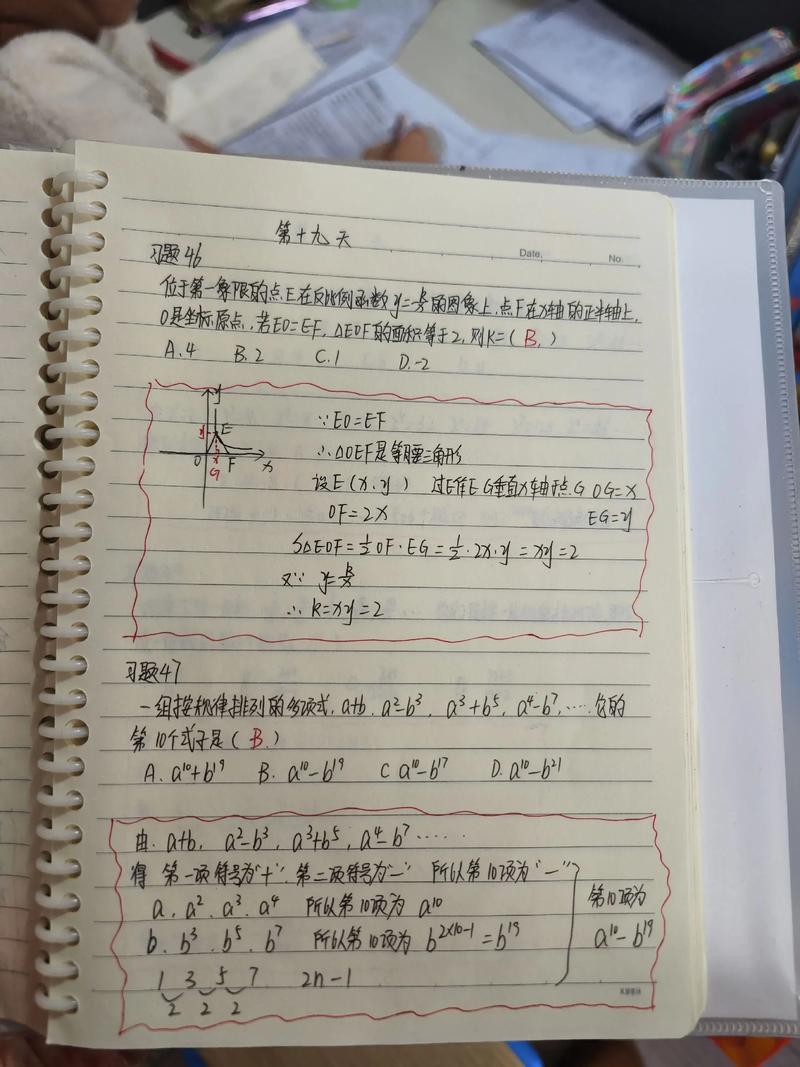 第十九天
Date.
No.
习题46
位于第一象限的点E在反比例函数y=k/x的图像上,点F在x轴的正半轴上,
O是坐标原点,若EO=EF,△EOF的面积等于2,则k=(B.)
A.4 B.2 C.1 D.-2
y
y E
O x F x
G
∵EO=EF
∴△OEF是等腰三角形
设E(x,y) 过E作EG垂直x轴于点G OG=x
OF=2x EG=y
S△EOF=1/2OF·EG=1/2·2x·y=xy=2
又∵ y=k/x
∴k=xy=2
习题47
一组按规律排列的多项式,a+b,a²-b³,a³+b⁵,a⁴-b⁷,……它的
第10个式子是(B.)
A.a¹⁰+b¹⁹ B.a¹⁰-b¹⁹ C a¹⁰-b¹⁷ D.a¹⁰-b²¹
由.a+b,a²-b³,a³+b⁵,a⁴-b⁷……
得 第一项符号为"+".第二项符号为"-" 所以第10项为"-"
a.a².a³.a⁴ 所以第10项为 a¹⁰
b.b³.b⁵.b⁷ 所以第10项为 b²ˣ¹⁰⁻¹=b¹⁹
第10项为
a¹⁰-b¹⁹
1 3 5 7 2n-1
2 2 2